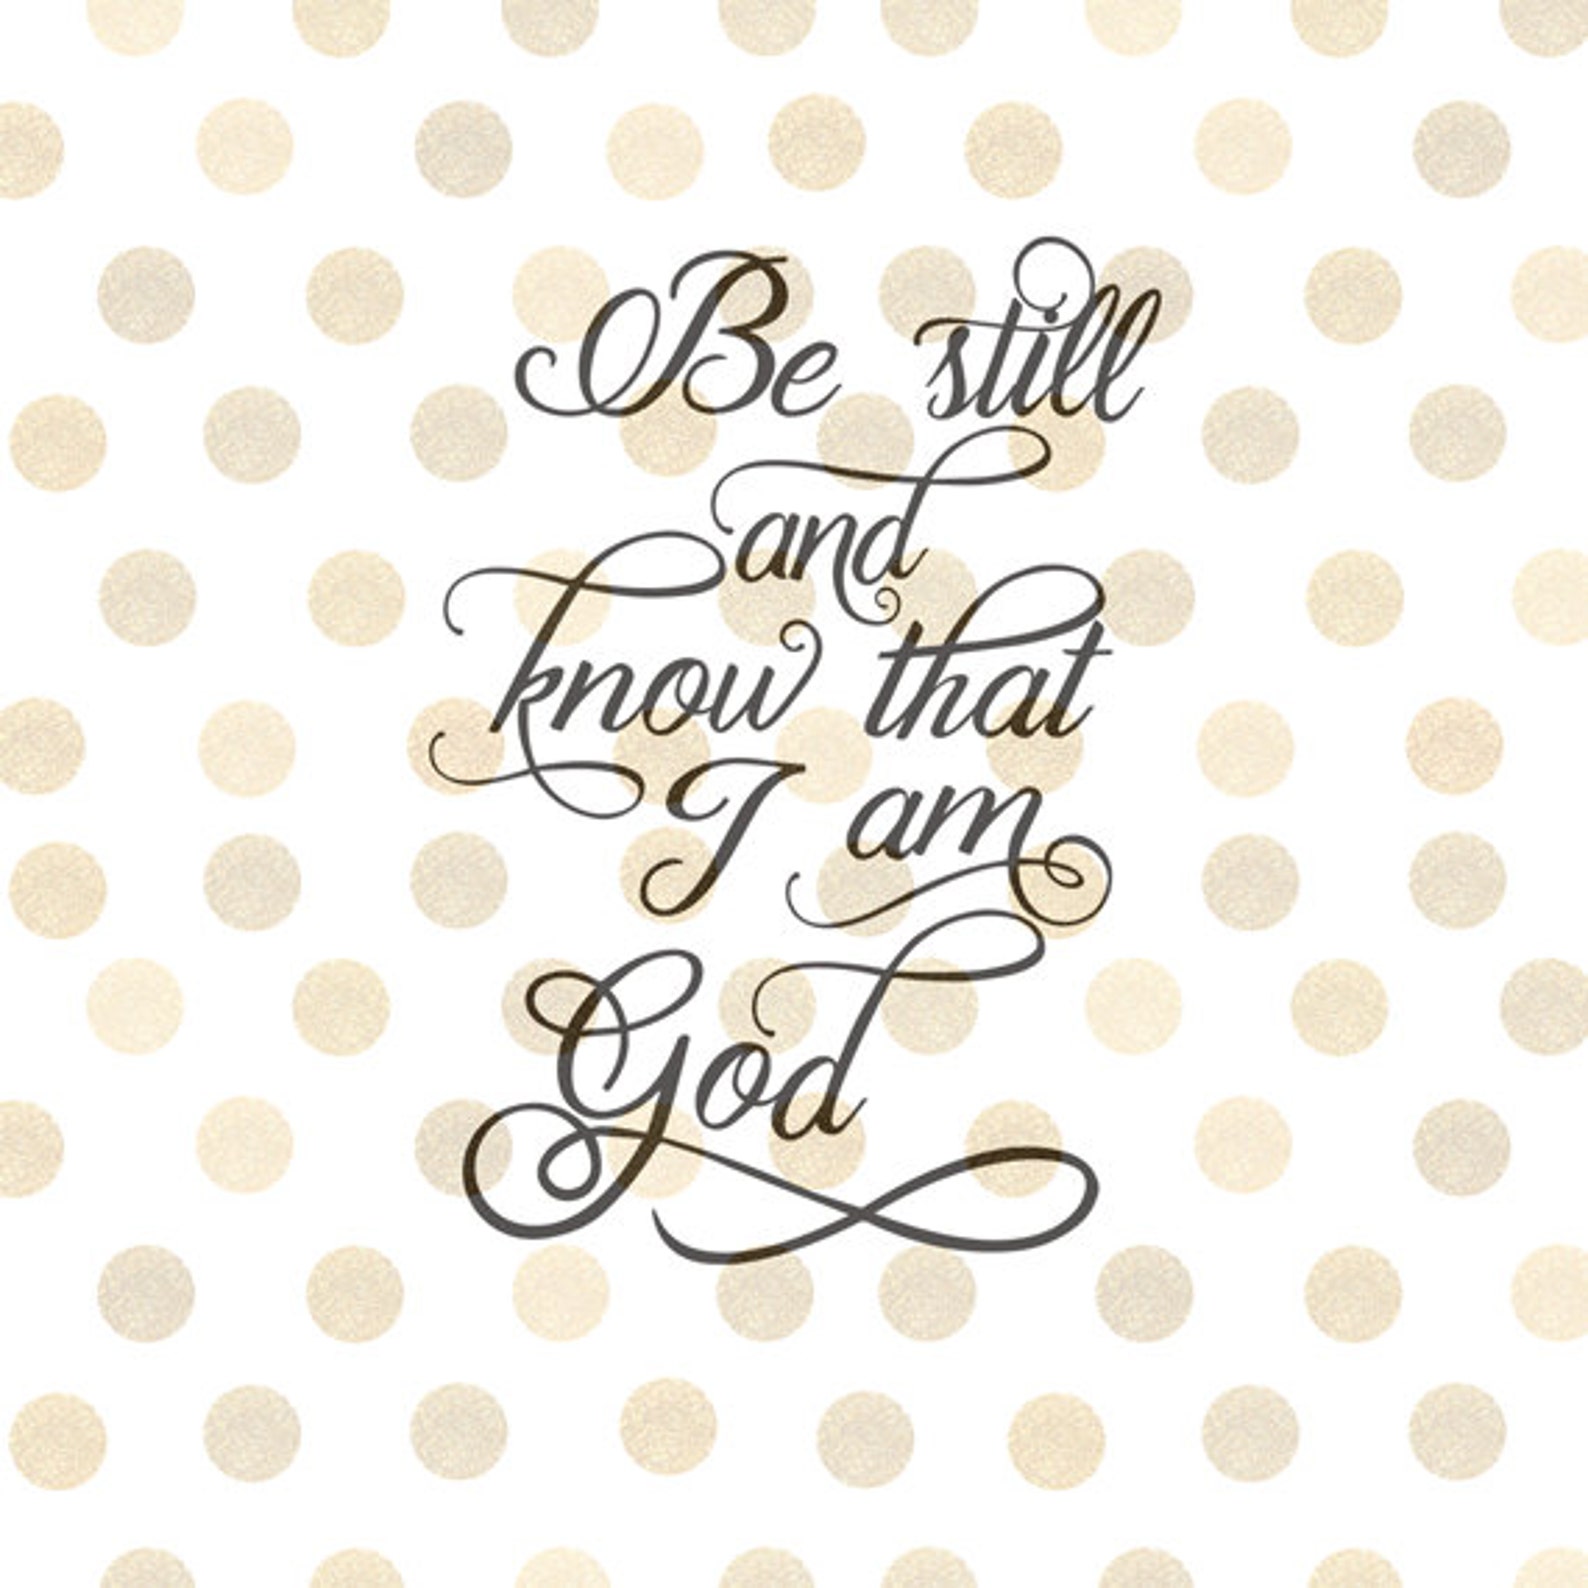 Be still
and
know that
I am
God